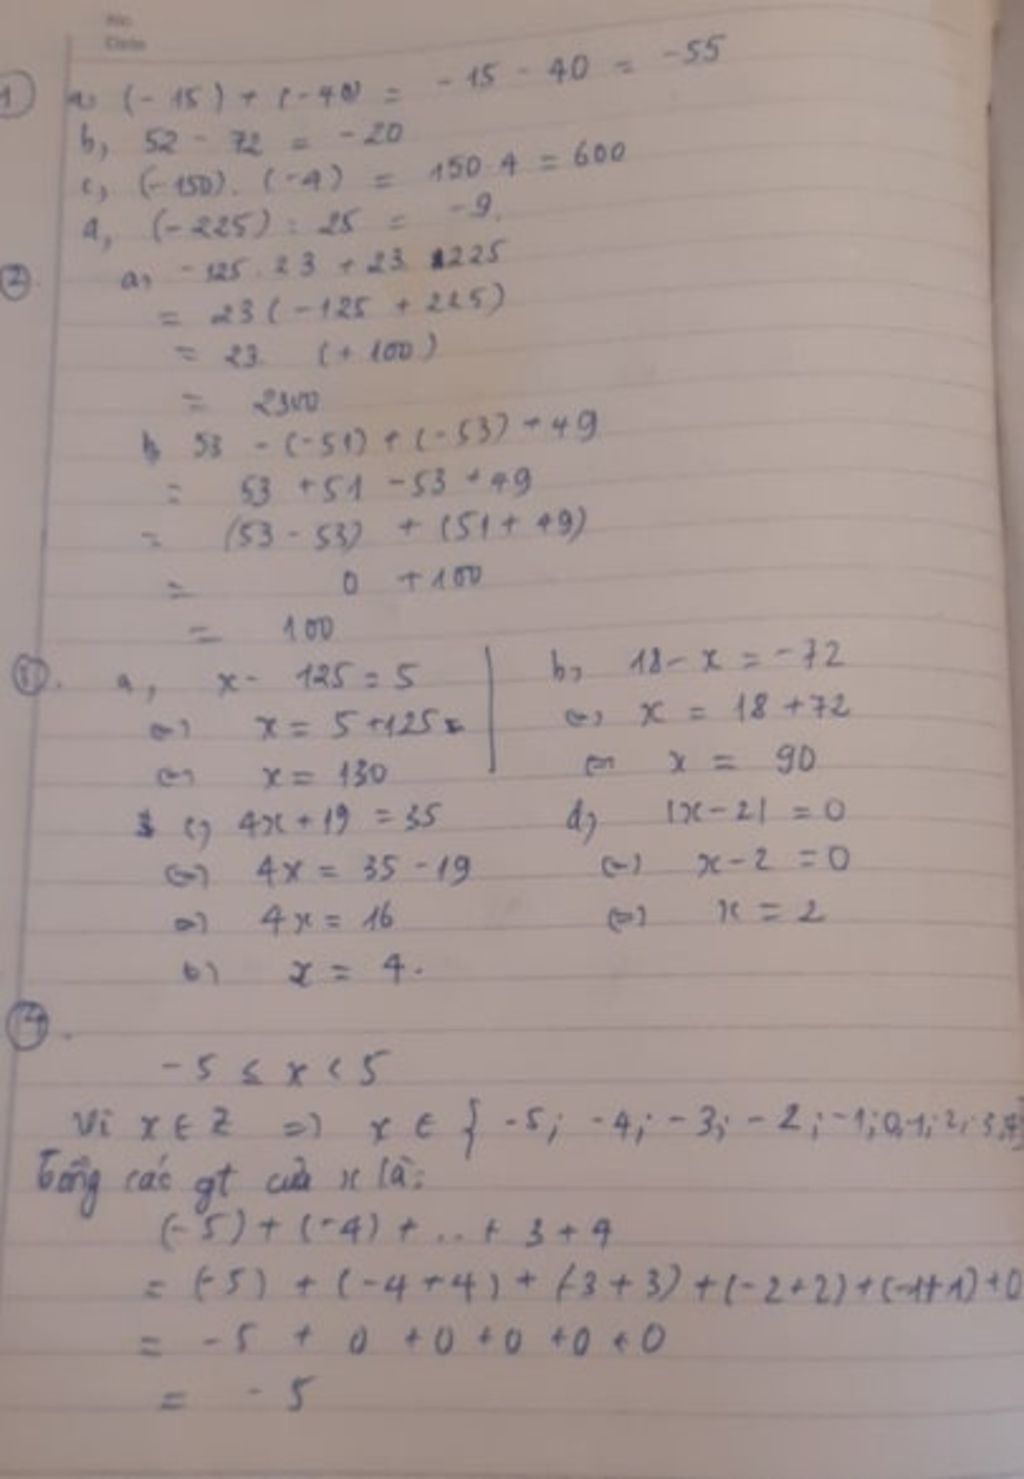 No.
Date
1 a, (-15) + (-40) = -15 - 40 = -55
b, 52 - 72 = -20
c, (-150). (-4) = 150 4 = 600
d, (-225) : 25 = -9.
2. a, -125. 23 + 23 225
= 23 (-125 + 225)
= 23. (+100)
= 2300
b 53 - (-51) + (-53) + 49
= 53 + 51 - 53 + 49
= (53 - 53) + (51 + 49)
= 0 + 100
= 100
3. a, x - 125 = 5
⇔ x = 5 + 125
⇔ x = 130
b, 18 - x = -72
⇔ x = 18 + 72
⇔ x = 90
c, 4x + 19 = 35
⇔ 4x = 35 - 19
⇔ 4x = 16
⇔ x = 4.
d, |x - 2| = 0
⇔ x - 2 = 0
⇔ x = 2
-5 ≤ x < 5
Vì x ∈ Z ⇒ x ∈ { -5; -4; -3; -2; -1; 0; 1; 2; 3; 4}
Tổng các gt của x là:
(-5) + (-4) + .. + 3 + 4
= (-5) + (-4 + 4) + (-3 + 3) + (-2 + 2) + (-1 + 1) + 0
= -5 + 0 + 0 + 0 + 0 + 0
= -5